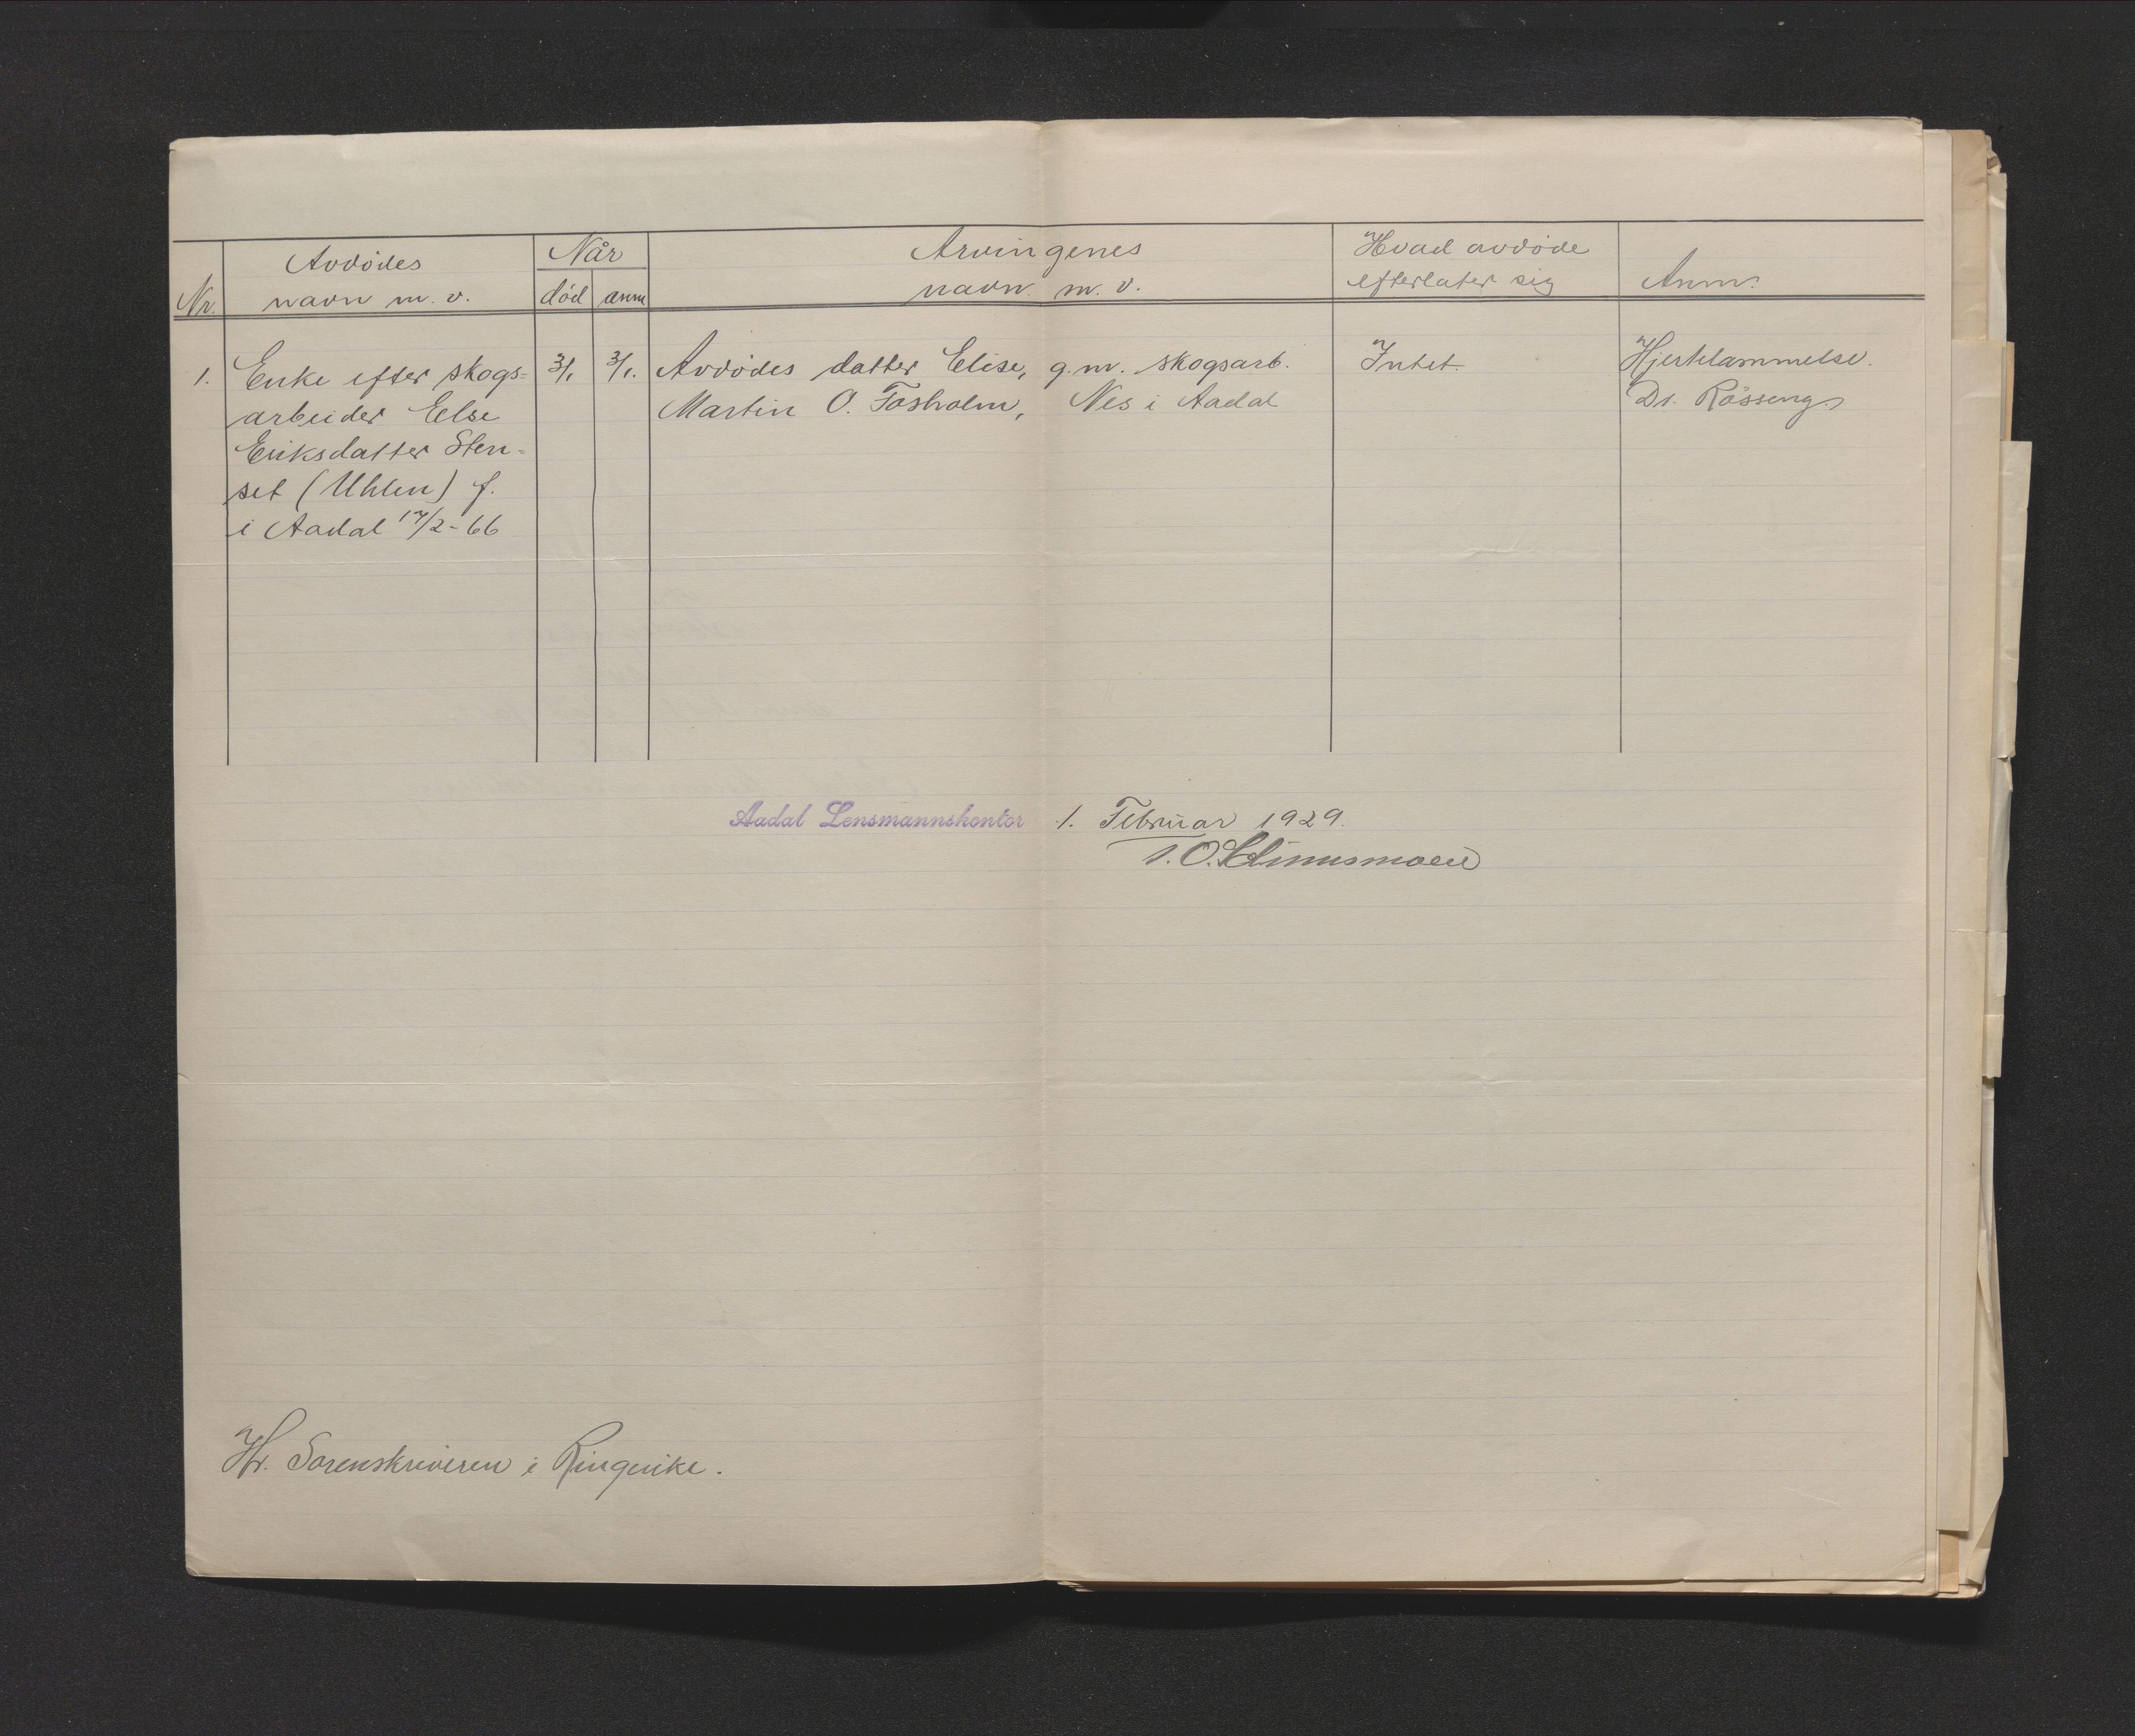 Avdødes
Når
Arvingenes
Hvad avdøde
Nr.
navn m. v.
død
anm
navn m. v.
efterlater sig
Anm.
1.
Enke efter skogs-
3/1
3/1.
Avdødes datter Elise, g.m. skogsarb.
Intet.
Hjertelammelse.
arbeider Else
Martin O. Fosholm, Nes i Aadal
Dr. Rösseng.
Eriksdatter Sten-
set (Uhlen) f.
i Aadal 17/2-66
Aadal Lensmannskontor 1. Februar 1929.
Hr. Sorenskriveren i Ringerike.